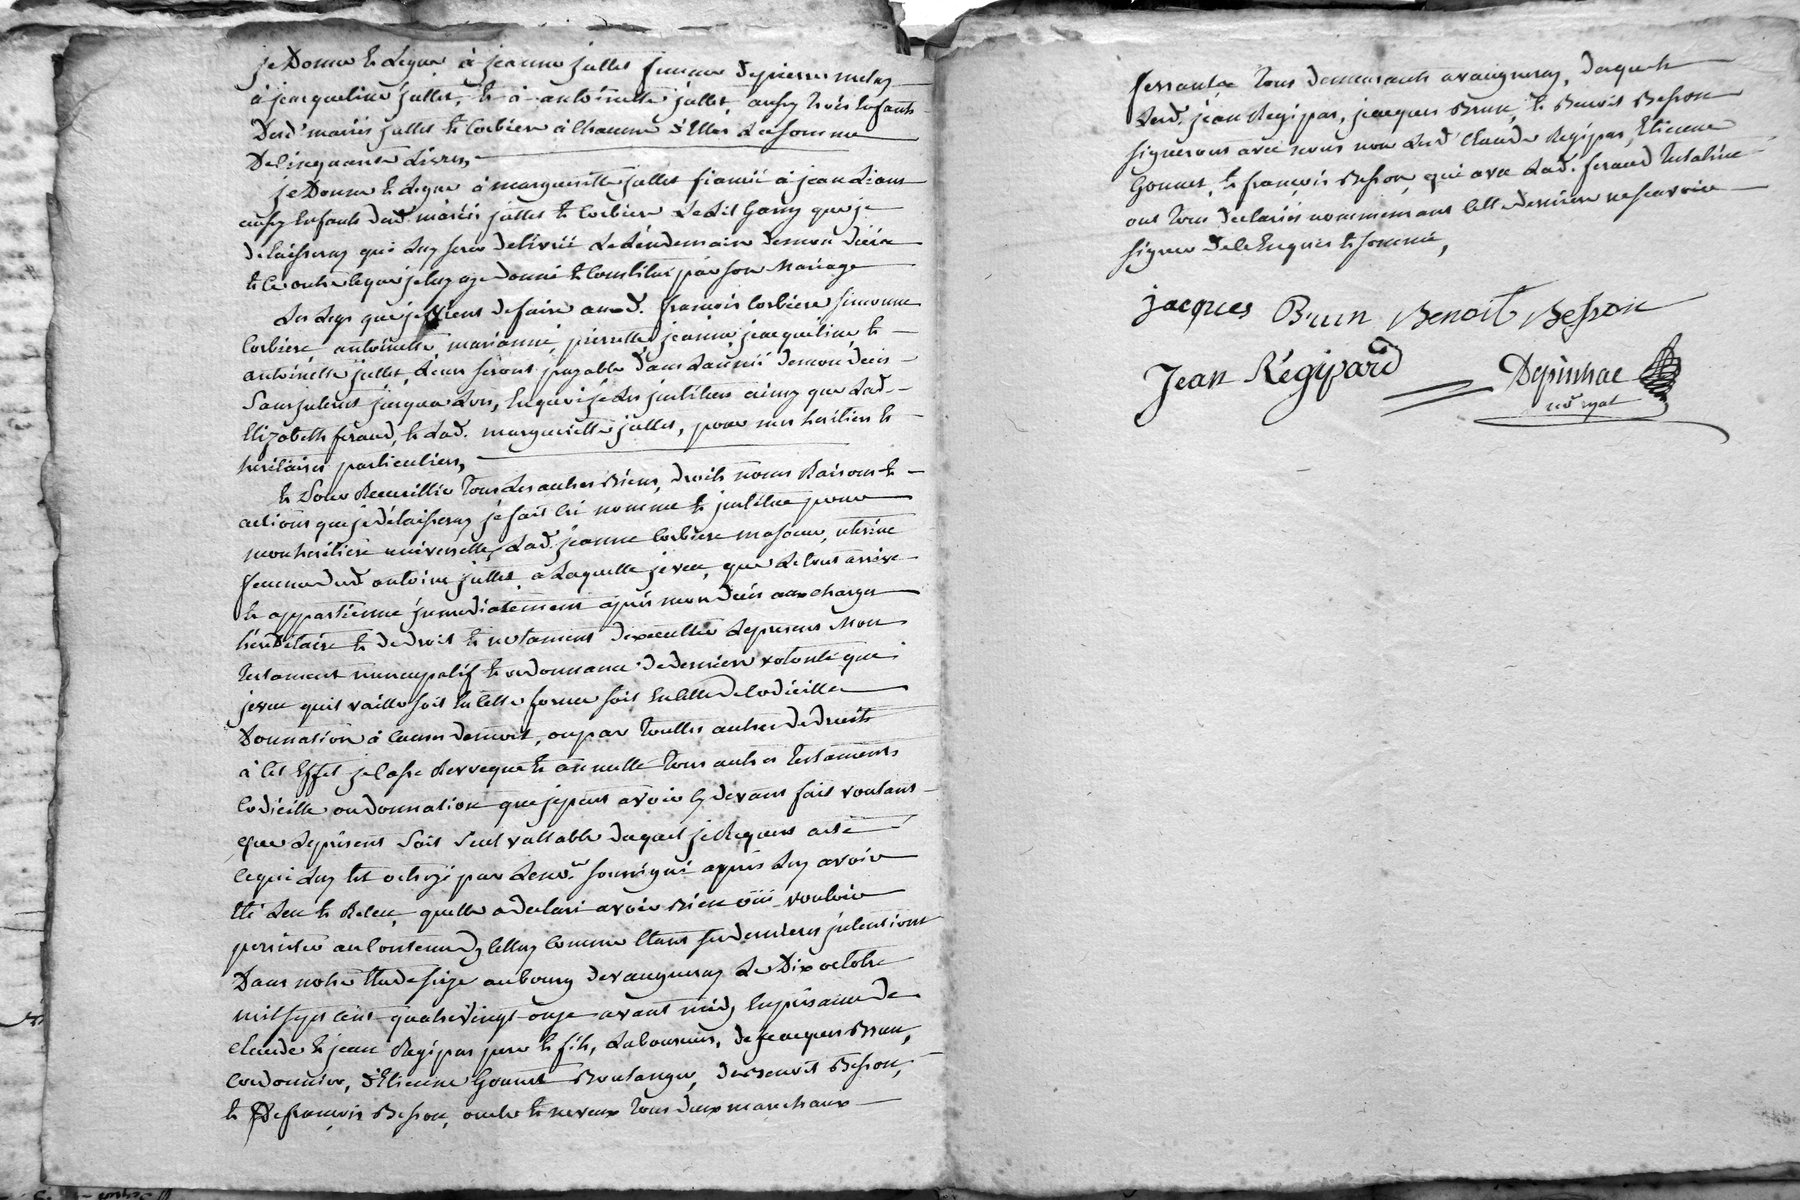 je Donne & Legue à jeanne jullet femme de pierre melay
à jacqueline jullet, & à antoinette jullet aussy trois Enfants
Desd. mariés jullet & Corbiere à Chacune d'Elles La somme
De Cinquante Livres,
je Donne & Legue à marguerite jullet fiancée à jean
aussy Enfants desd. mariés jullet & Corbiere Le Lit Garny que je
delaisseray qui Luy sera delivré Le Lendemain de mon décès
& Ce outre Ceque je Luy ay donné & Constitué par son Mariage
Les Legs que je viens de faire auxd. françois Corbiere simonne
Corbiere antoinette, marianne, pierrette, jeanne, jacqueline, &
antoinette jullet, Leurs seront payable dans L'année de mon décès
Sans interest jusqua Lors, En quoi je Les institues ainsy que Lad.
Elizabeth feraud, & Lad. marguerite jullet, pour mes heritiers &
heritieres particuliers,
& Pour Recueillir Tous Les autres Biens, droits noms Raisons &
actions que je délaisseray je fais cri nomme & institue pour
mon heritiere universelle, Lad. jeanne Corbiere ma soeur, uterine
femme dud. antoine jullet, à Laquelle je veu, que Le tout arrive
& appartienne immediatement après mon décès aux charges
héréditaire & de droit & notament d'executter Le present Mon
Testament nuncupatif & ordonnance de derniere volonté que
je veu quil vaille soit En Cette forme soit En Celle de Codicille
Donnation à Cause de mort, ou par Toutes autres de droits
à Cet Effet je Casse Revoque & annulle Tous autres Testaments
Codicille ou donnation que je peus avoir Cy devant fait voulant
que Le present Soit Seul vallable duquel je Requers acte
Ce qui Luy Est octroyé par Le no.re soussigné après Luy avoir
Eté Leu & Releu, quelle a declaré avoir Bien ouii vouloir
persister au Contenu dycelluy Comme Etant ses dernieres intentions
Dans notre Etude size au bourg de vaugneray Le Dix octobre
mil sept cent quatrevingt onze avant midy En presence de
Claude & jean Regipas pere & fils, Laboureurs, de jacques Brun,
Cordonnier, d'Etienne Gonnet Boulanger, de Benoit Besson,
& De françois Besson, oncle & neveux Tous deux marechaux
ferrants Tous demeurants a vaugneray, desquels
Lesd. jean Regipas, jacques Brun, & Benoit Besson
signerons avec nous non Led. Claude Regipas, Etienne
Gonnet, & françois Besson, qui avec Lad. feraud Testatrice
ont Tous declarés nommement Cette derniere ne scavoir
signer de ce Enquis & sommé,
jacques Brun Benoit Besson
Jean Régipard Depinhac
no.re royal